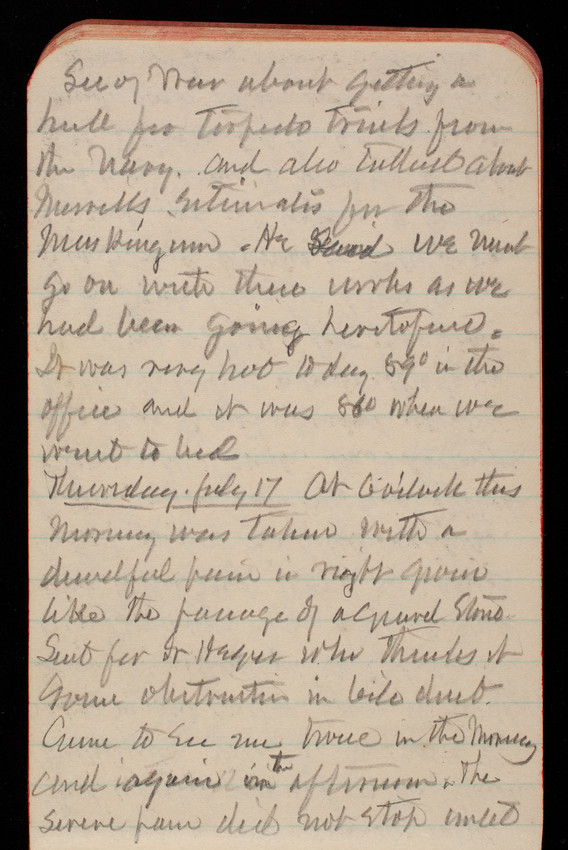 Sec of War about getting a
hull for torpedo trials from
the Navy. and also talked about
Merrill's Estimates for the
Muskingum. He said we must
go on with these works as we
had been going heretofore.
It was very hot to day 89° in the
office and it was 86° when we
went to bed
Thursday. July 17 At 6 o'clock this
Morning was taken with a
dreadful pain in right groin
like the passage of a gravel stone.
Sent for Dr who thinks it
some obstruction in bile duct.
Came to see me twice in the Morning
and again in the afternoon. The
severe pain did not stop until